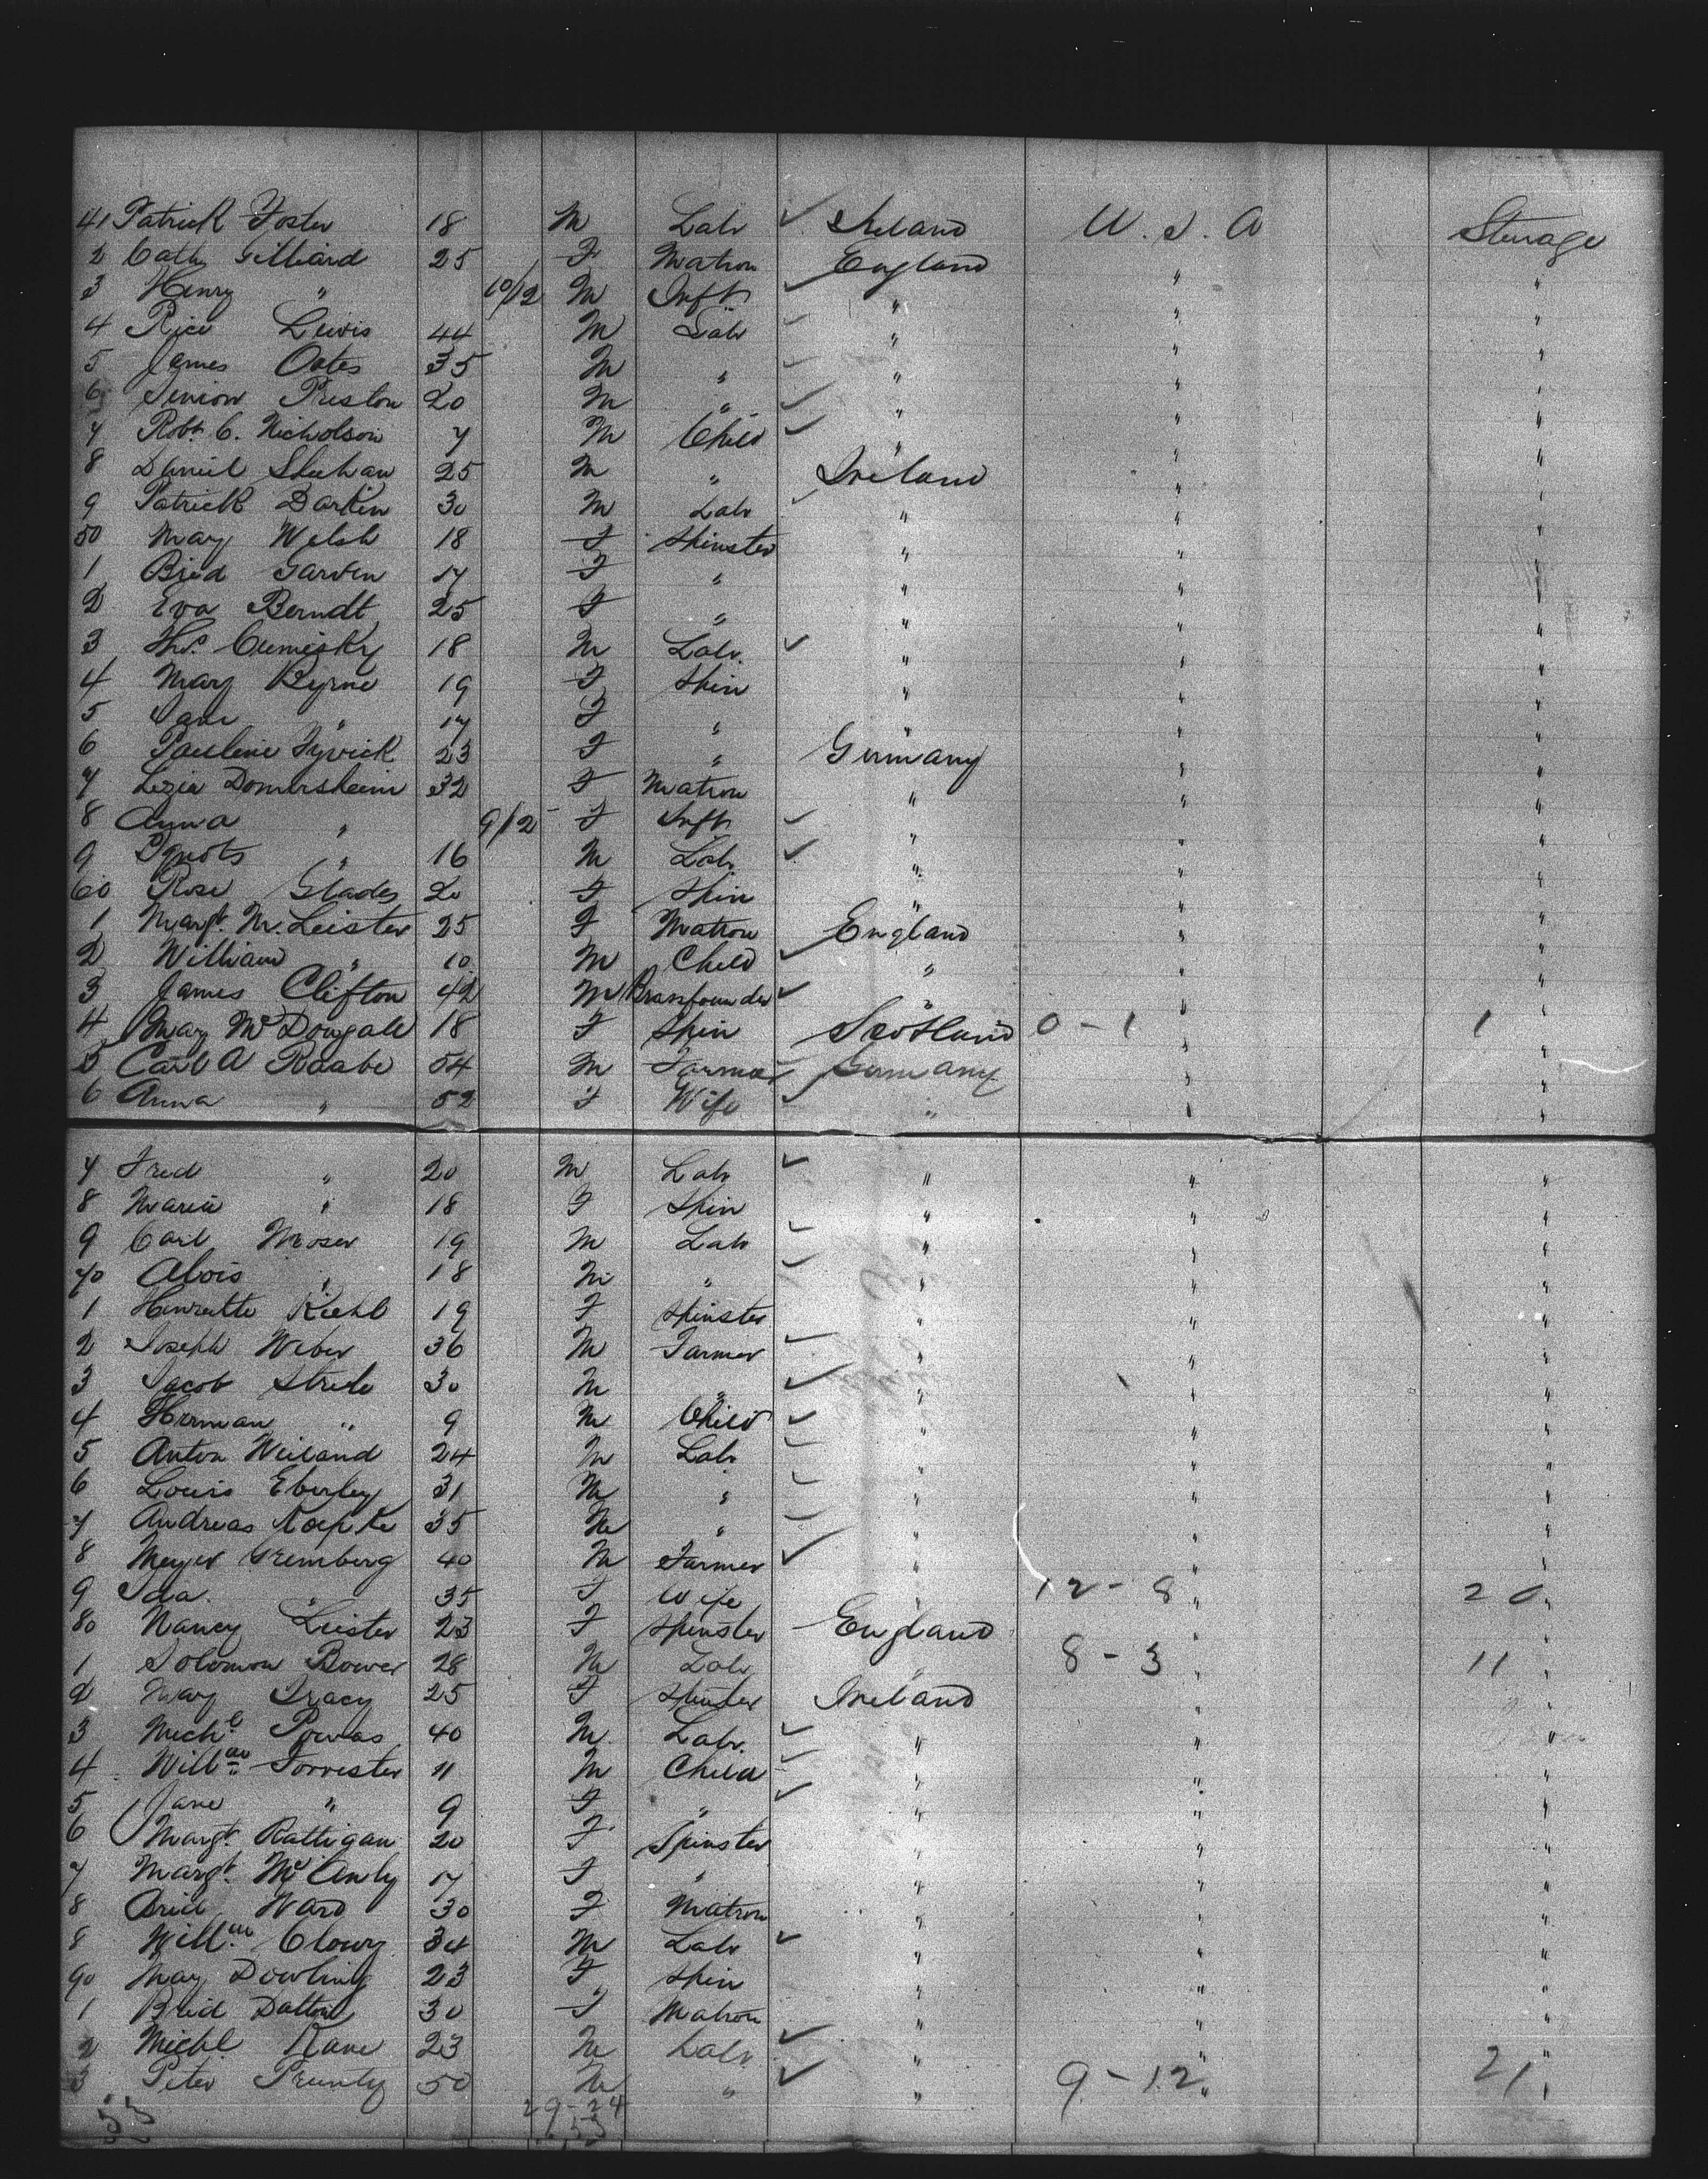 41 Patrick Foster 18 M Labr ✓ Ireland U.S.A Steerage
2 Cath Gilliard 25 F Matron England " "
3 Henry " 10/12 M Inft ✓ " " "
4 Rice Lewis 44 M Labr ✓ " " "
5 James Oates 35 M " ✓ " " "
6 Simion Preston 20 M " ✓ " " "
7 Robt C. Nicholson 7 M Child ✓ " " "
8 Daniel Sheehan 25 M " Ireland " "
9 Patrick Darkin 30 M Labr ✓ " " "
50 Mary Welsh 18 F Spinster " " "
1 Brid Garven 17 F " " " "
2 Eva Berndt 25 F " " " "
3 Ths. Cumisky 18 M Labr. ✓ " " "
4 Mary Byrne 19 F Spin " " "
5 Jane " 17 F " " " "
6 Pauline 23 F " Germany " "
7 Domersheim 32 F Matron " " "
8 Anna " 9/12 F Inft ✓ " " "
9 " 16 M Labr ✓ " " "
60 Rose Glades 20 F Spin " " "
1 Margt. Mc Leister 25 F Matron England " "
2 William " 10 M Child ✓ " " "
3 James Clifton 42 M Brassfounder ✓ " " "
4 Mary McDougall 18 F Spin Scotland 0-1 " 1
5 Carl A Raabe 54 M Farmer ✓ Germany " "
6 Anna " 52 F Wife ✓ " " "
7 Fred " 20 M Labr ✓ " " "
8 Maria " 18 F Spin " " "
9 Carl Moser 19 M Labr ✓ " " "
70 Alois " 18 M " ✓ " " "
1 Henriette Kiehl 19 F Spinster " " "
2 Joseph Weber 36 M Farmer ✓ " " "
3 Jacob 30 M " ✓ " " "
4 Herman " 9 M Child ✓ " " "
5 Anton Weiland 24 M Labr ✓ " " "
6 Louis Eberley 31 M " ✓ " " "
7 Andreas Koepke 35 M " ✓ " " "
8 Meyer Gremberg 40 M Farmer ✓ " " "
9 Ida " 35 F Wife " 12-8 " 20 "
80 Nancy Leister 23 F Spinster England
1 Solomon Bower 28 M Labr " 8-3 " 11 "
2 Mary Tracy 25 F Spinster Ireland "
3 Michl Powas 40 M Labr. ✓ " " "
4 Willam Forrester 11 M Child ✓ " " "
5 Jane " 9 F " ✓ " " "
6 Margt. Rattigan 20 F Spinster " " "
7 Margt. McAnly 17 F " " " "
8 Brid Ward 30 F Matron " " "
8 Willam Clowry 34 M Labr ✓ " " "
90 May Dowling 23 F Spin " " "
1 Brid Dalton 30 F Matron " " "
2 Michl. Kane 23 M Labr ✓ " " "
3 Peter Prunty 50 M " ✓ " 9-12 " 21 "
53 29-24
53